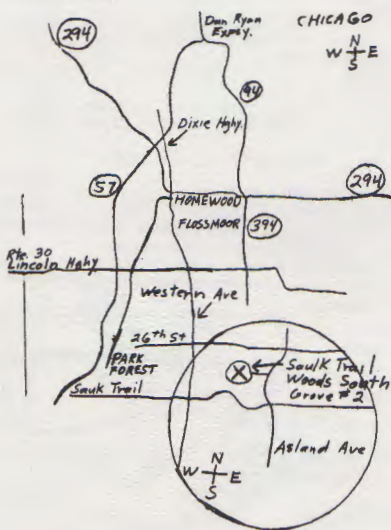 CHICAGO
N
W E
S
Dan Ryan
Expsy.
294
94
Dixie Hghy.
57
HOMEWOOD
294
FLOSSMOOR
394
Rte. 30
Lincoln Hghy
Western Ave
26th St
PARK
FOREST
Sauk Trail
X
Saulk Trail
Woods South
Grove #2
Asland Ave
N
W E
S